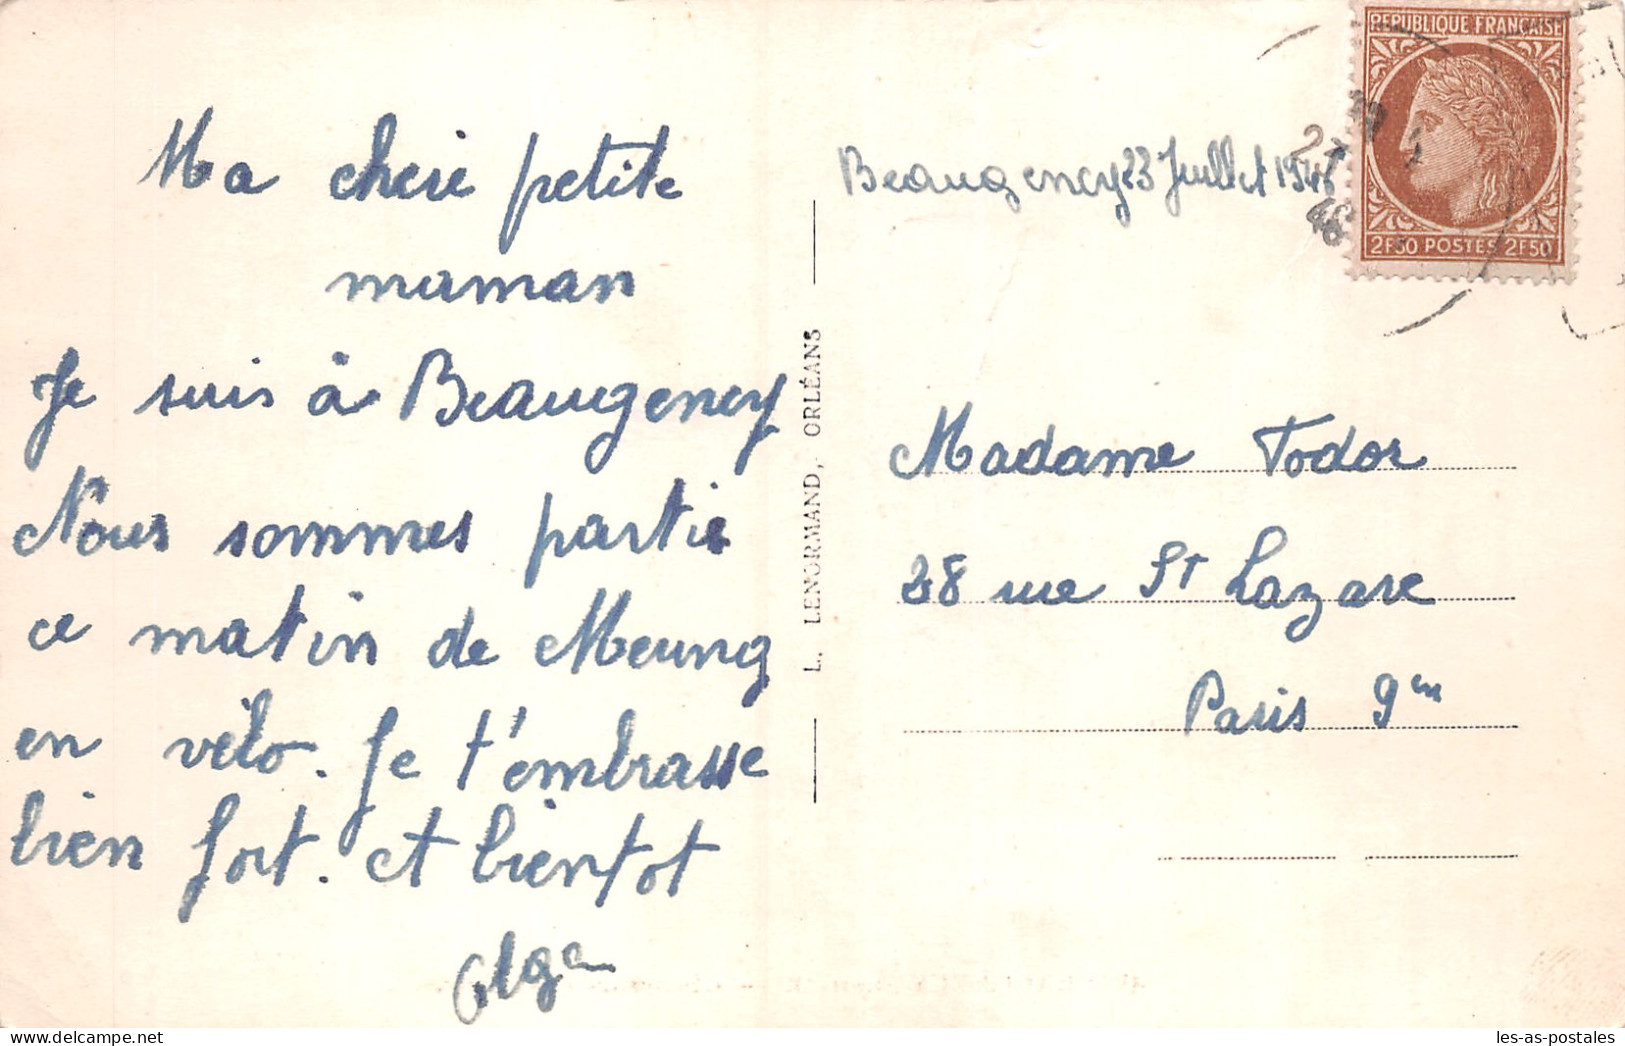 Ma cheri petite
maman
Je suis à Beaugency
Nous sommes partie
ce matin de Meung
en vélo. Je t'embrasse
bien fort. et bientot
Olga
L. LENORMAND, ORLÉANS
Beaugency 23 Juillet 1946
REPUBLIQUE FRANÇAISE
2F50 POSTES 2F50
46
Madame Todor
28 rue St Lazare
Paris 9em
les-as-postales